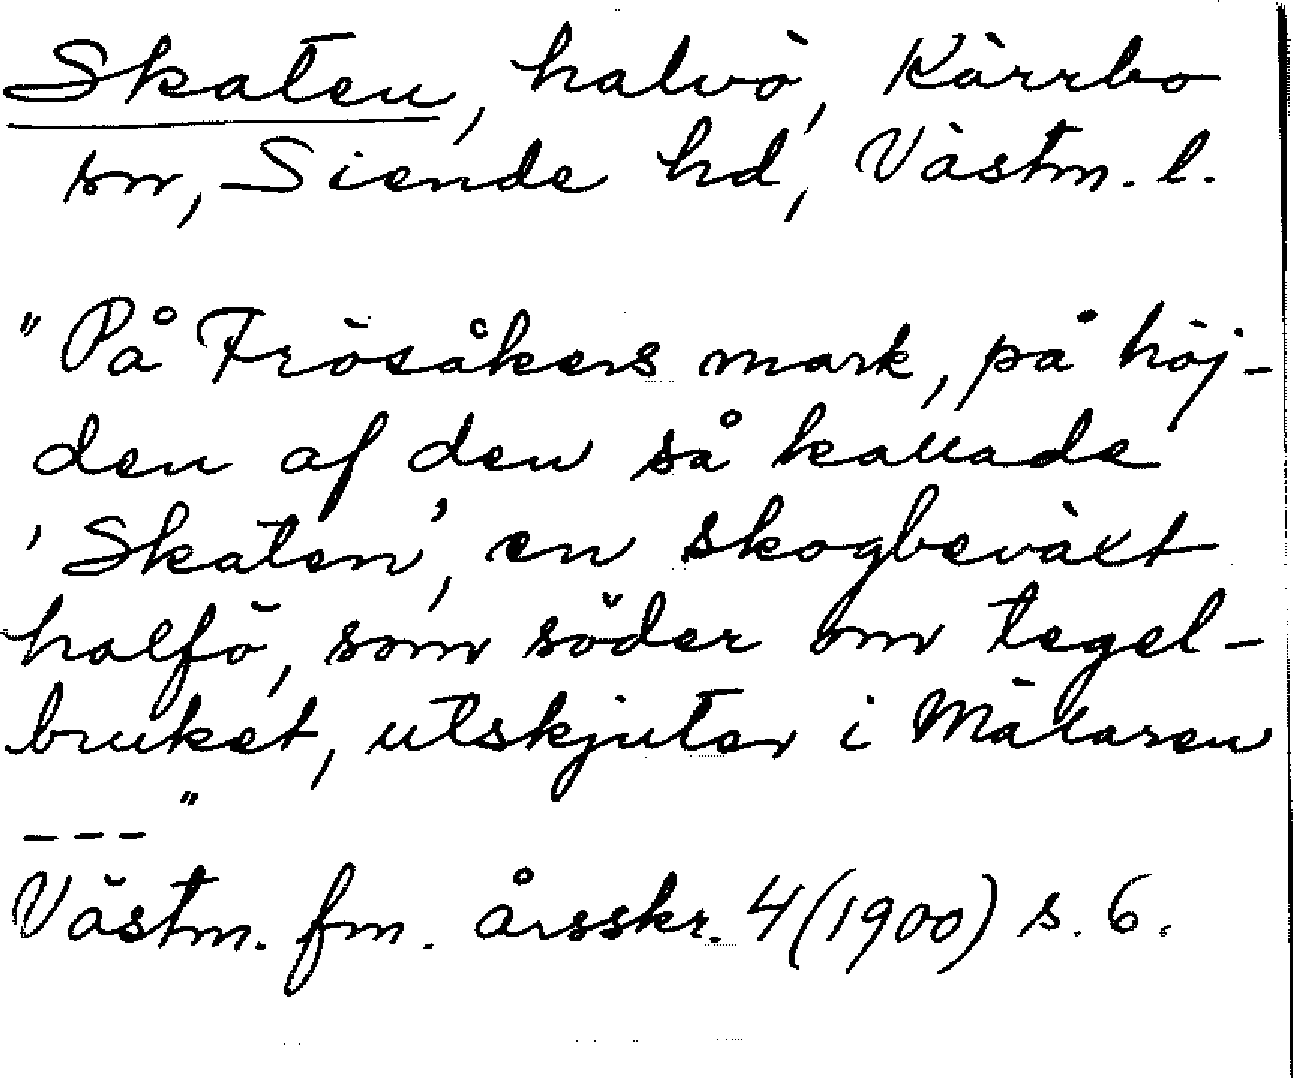 Skaten, halvö, Kärrbo
sn, Siende hd, Västm. l.
"På Frösåkers mark, på höj-
den af den så kallade
'Skaten', en skogbeväxt
halfö, som söder om tegel-
bruket, utskjuter i Mälaren
---"
Västm. fm. årsskr. 4 (1900) s. 6.